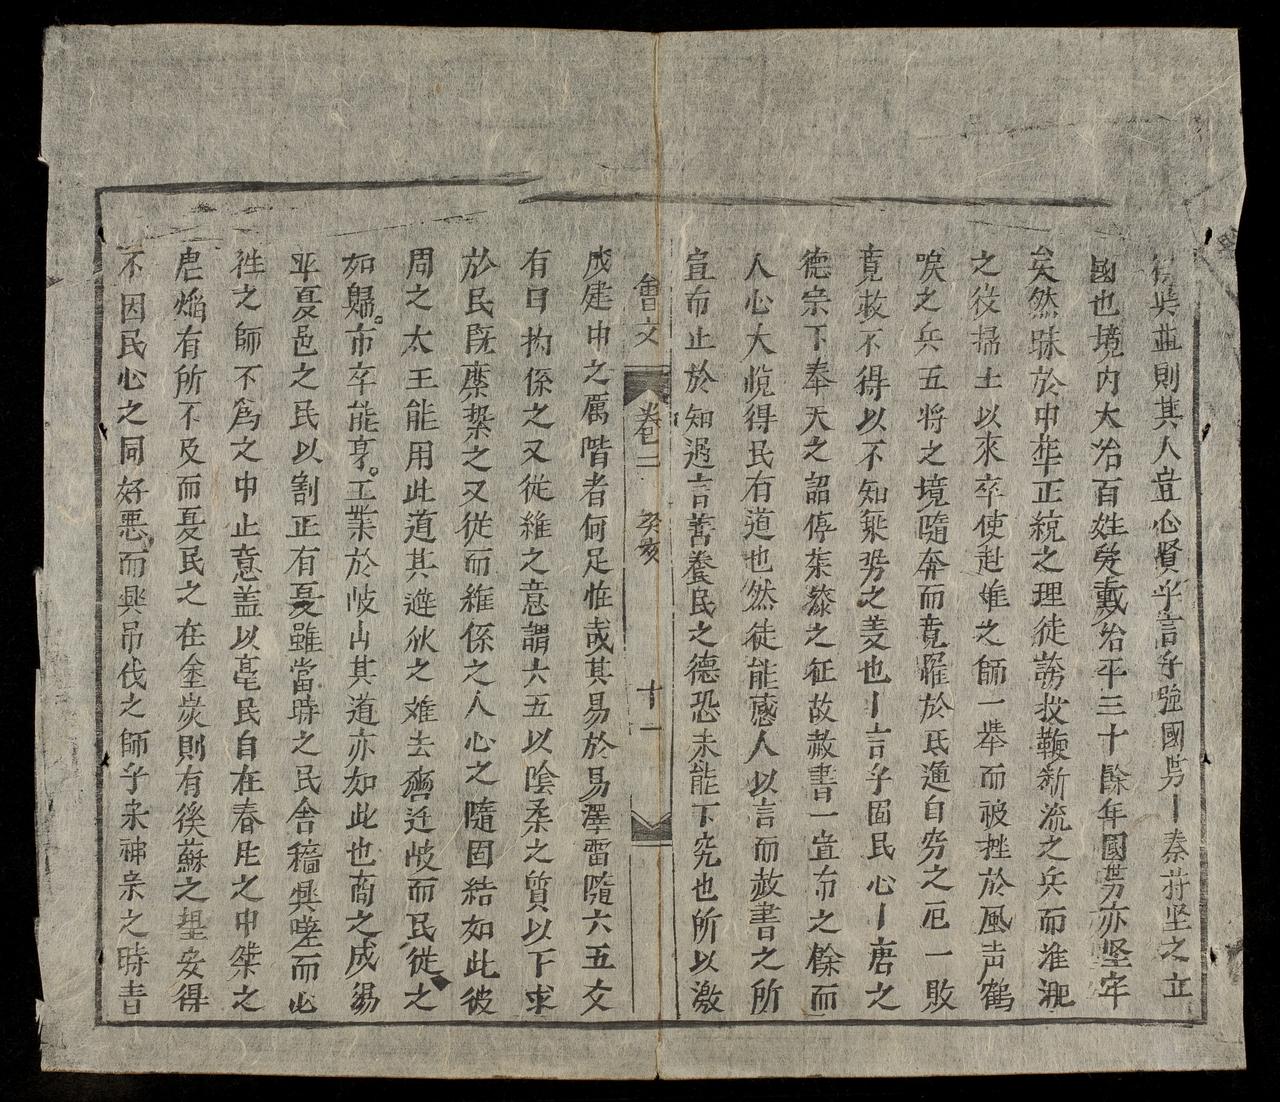 與並則其人豈必賢乎言乎強國势丨秦苻坚之立
國也境内大治百姓爱戴治平三十餘年國势亦坚牢
矣然昧於中華正統之理徒誇投鞭斷流之兵而淮淝
之役掃土以來卒使赳雄之師一舉而被挫於風声鶴
唳之兵五將之境隨奔而竟罹於氐運自穷之厄一敗
竟救不得以不知乗势之羑也丨言乎固民心丨唐之
德宗下奉天之詔停䒳漆之征故赦書一宣布之餘而
人心大悅得民有道也然徒能感人以言而赦書之所
宣布止於知過言善養民之德恐未能下究也所以激
會文 卷二 癸亥 十一
成建中之厲階者何足怪哉其易於易澤雷隨六五爻
有曰拘係之又従維之意謂六五以陰柔之質以下求
於民既縻縶之又従而維係之人心之隨固結如此彼
周之太王能用此道其避狄之难去豳迁岐而民従之
如歸市卒能亨王業於岐山其道亦如此也商之成湯
平夏邑之民以割正有憂雖當時之民舍穡興嗟而必
徃之師不為之中止意盖以亳民自在春臺之中桀之
虐焔有所不及而夏民之在塗炭則有徯蘇之望安得
不因民心之同好悪而興吊伐之師乎宋神宗之時青